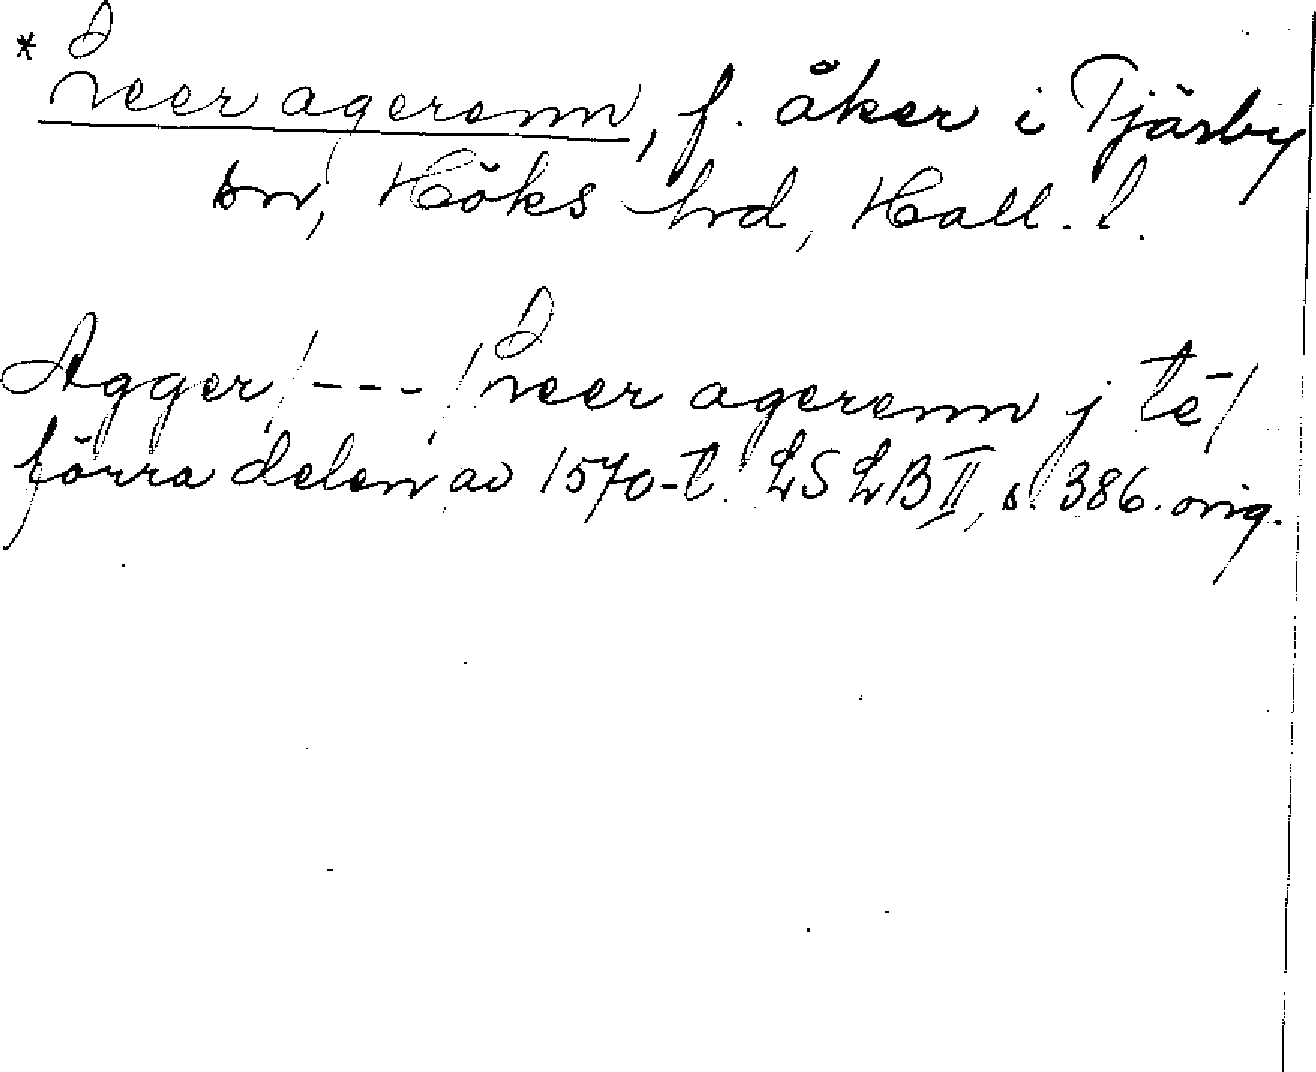 * Sveer agerenn, f. åker i Tjärby
sn, Höks hrd, Hall. l.
Agger /---/ Sveer agerenn j tē/
förra delen av 1570-t. LSLB II, s. 386. orig.